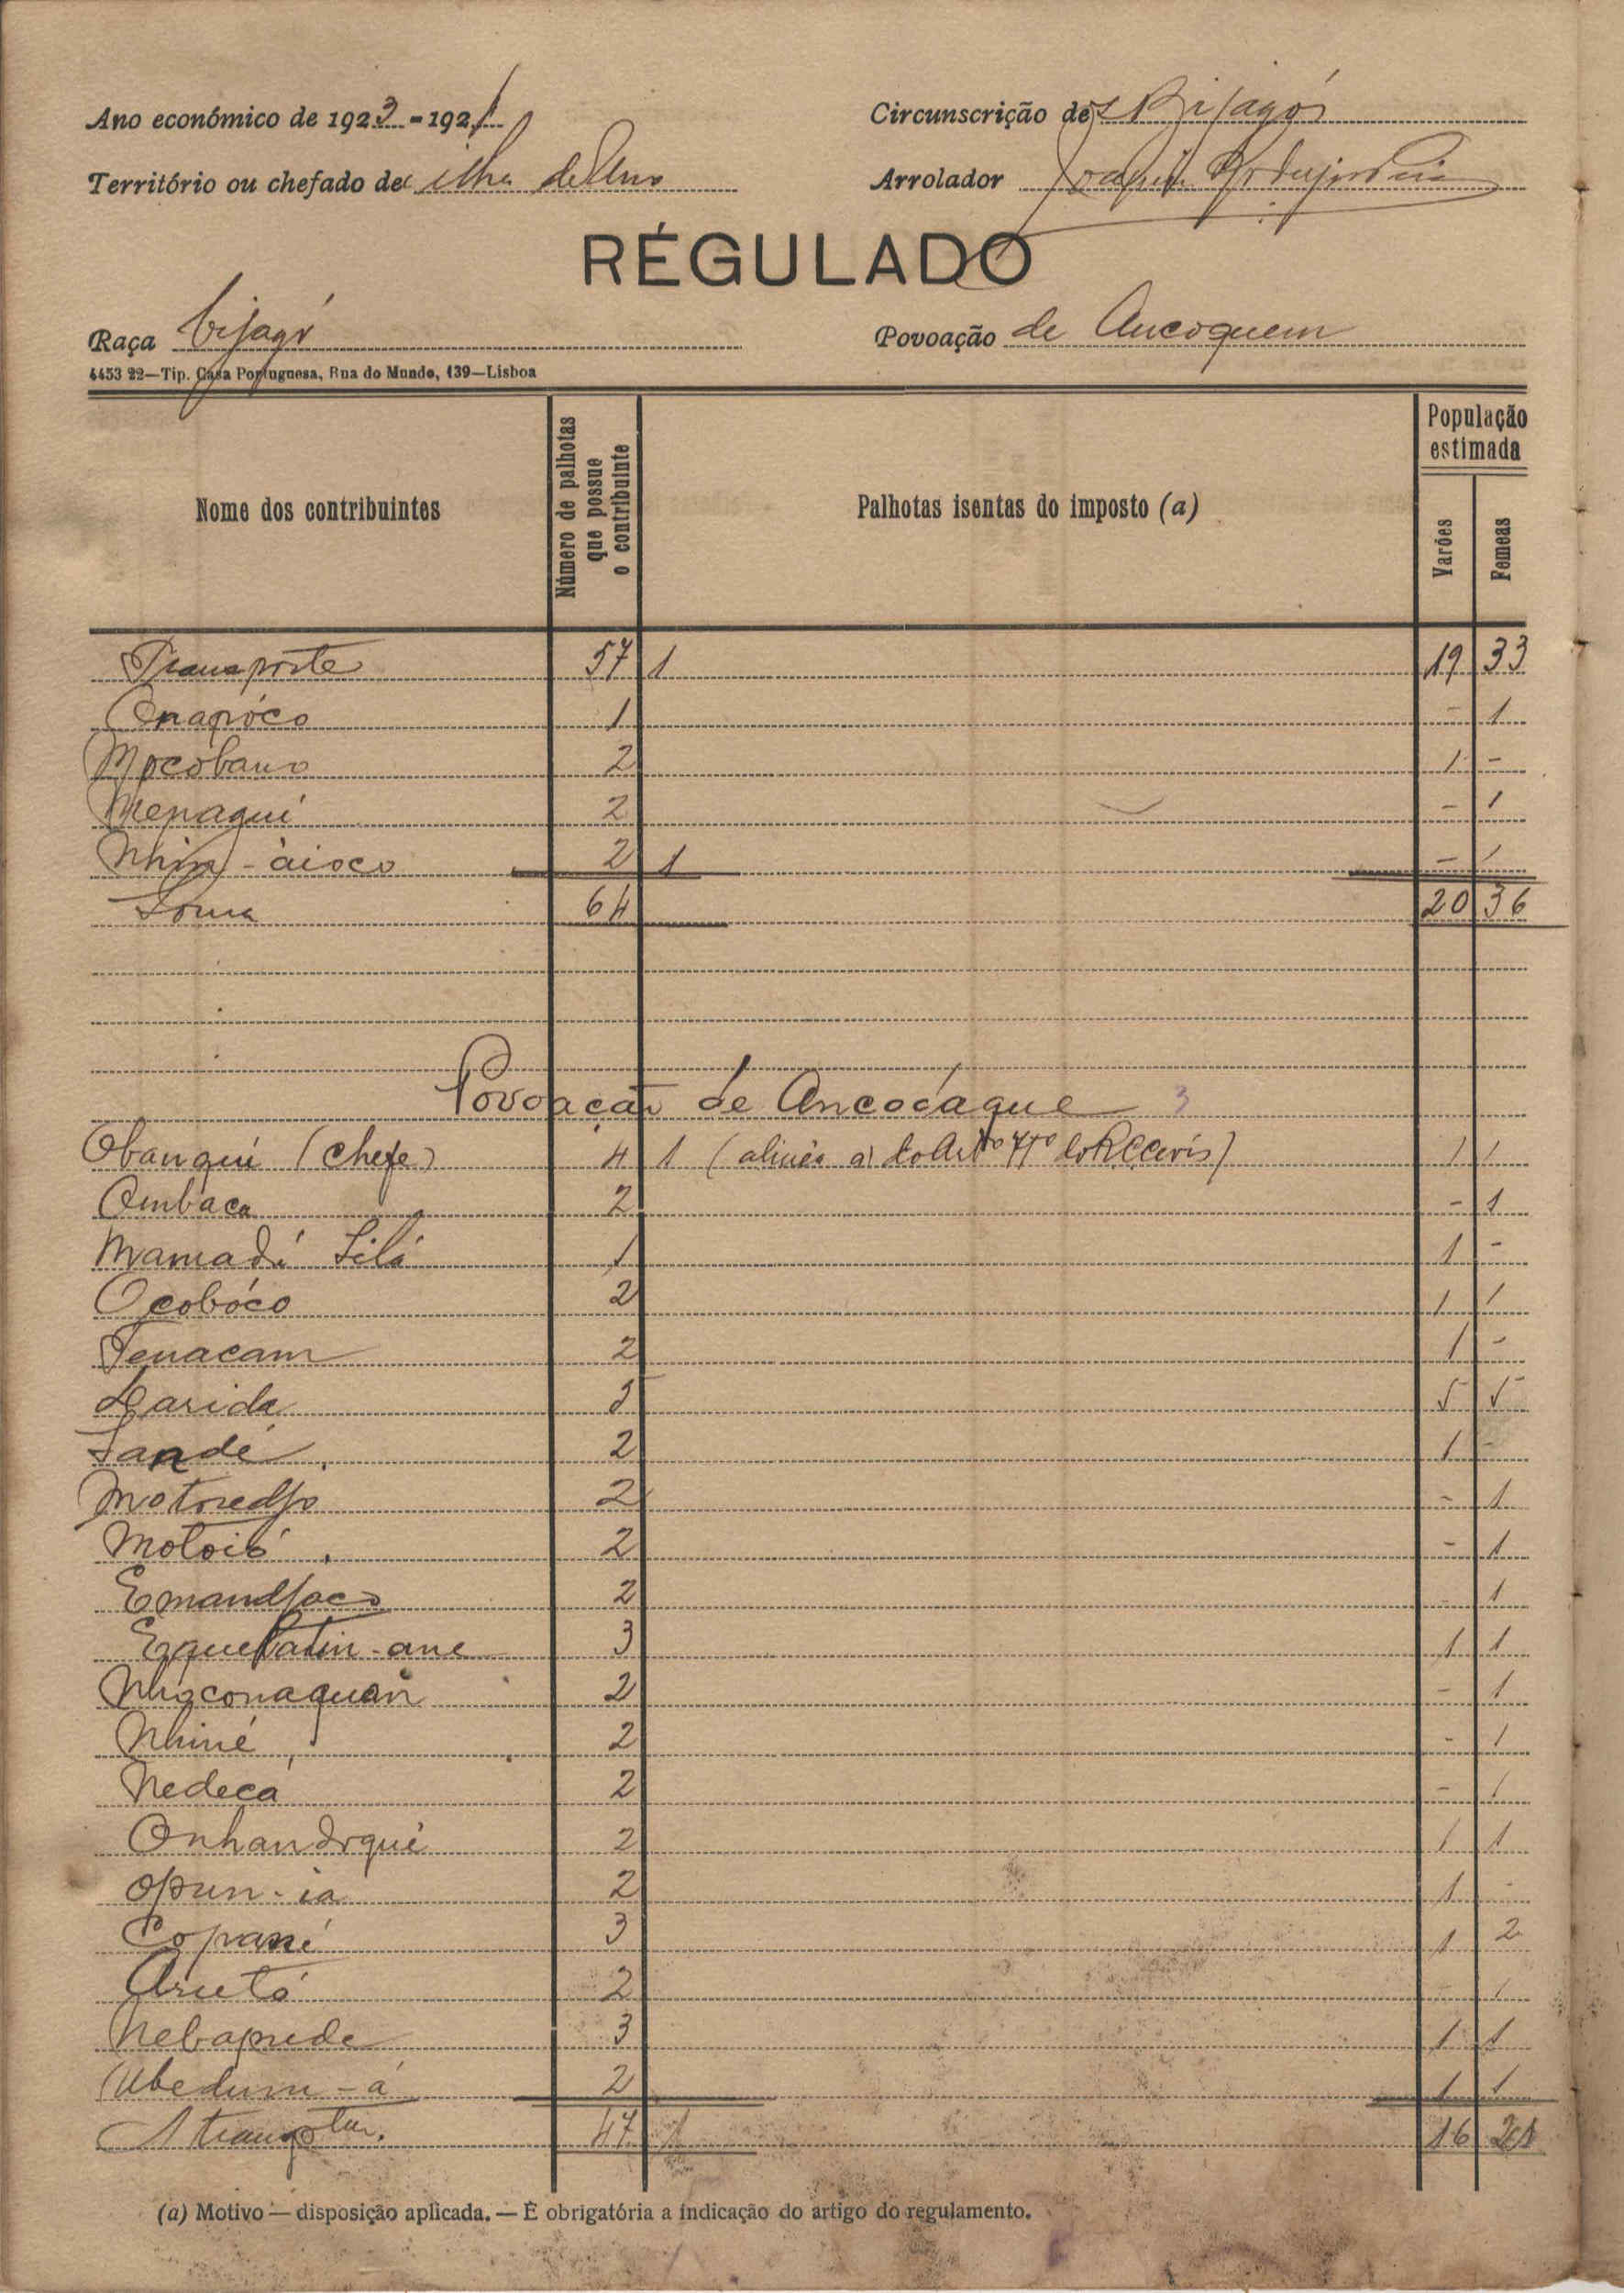 Ano económico de 1923 - 192
Circunscrição de Bijagós
Território ou chefado de ilha de Uno
Arrolador Joaquim
RÉGULADO
Raça bijagó
Povoação de Ancoquem
4453 22—Tip. Casa Portuguesa, Rua do Mundo, 139—Lisboa
Nome dos contribuintes
Número de palhotas que possue o contribuinte
Palhotas isentas do imposto (a)
População estimada
Varões
Femeas
Transporte 57 1 19 33
Onapóco 1 - 1
Mocobano 2 1 -
Menaqui 2 - 1
Nhin-àioco 2 1 - 1
Soma 64 20 36
Povoação de Ancocáque 3
Obanqui (chefe) 4 1 (alinea a) do 1 1
Ombaca 2 - 1
Mamadú Silá 1 1 -
Ocobóco 2 1 1
Tenacam 2 1 -
Larida 5 5 5
Sandé 2 1 -
Motoredjo 2 - 1
Motoió 2 - 1
Emandjaco 2 - 1
3 1 1
2 - 1
Nhiné 2 - 1
Nedeca 2 - 1
Onhandoqui 2 1 1
Opun-ia 2 1 -
Copané 3 1 2
Arutó 2 - 1
Nebaprede 3 1 1
Ubedum-á 2 1 1
A transptar. 47 1 16 21
(a) Motivo — disposição aplicada. — É obrigatória a indicação do artigo do regulamento.